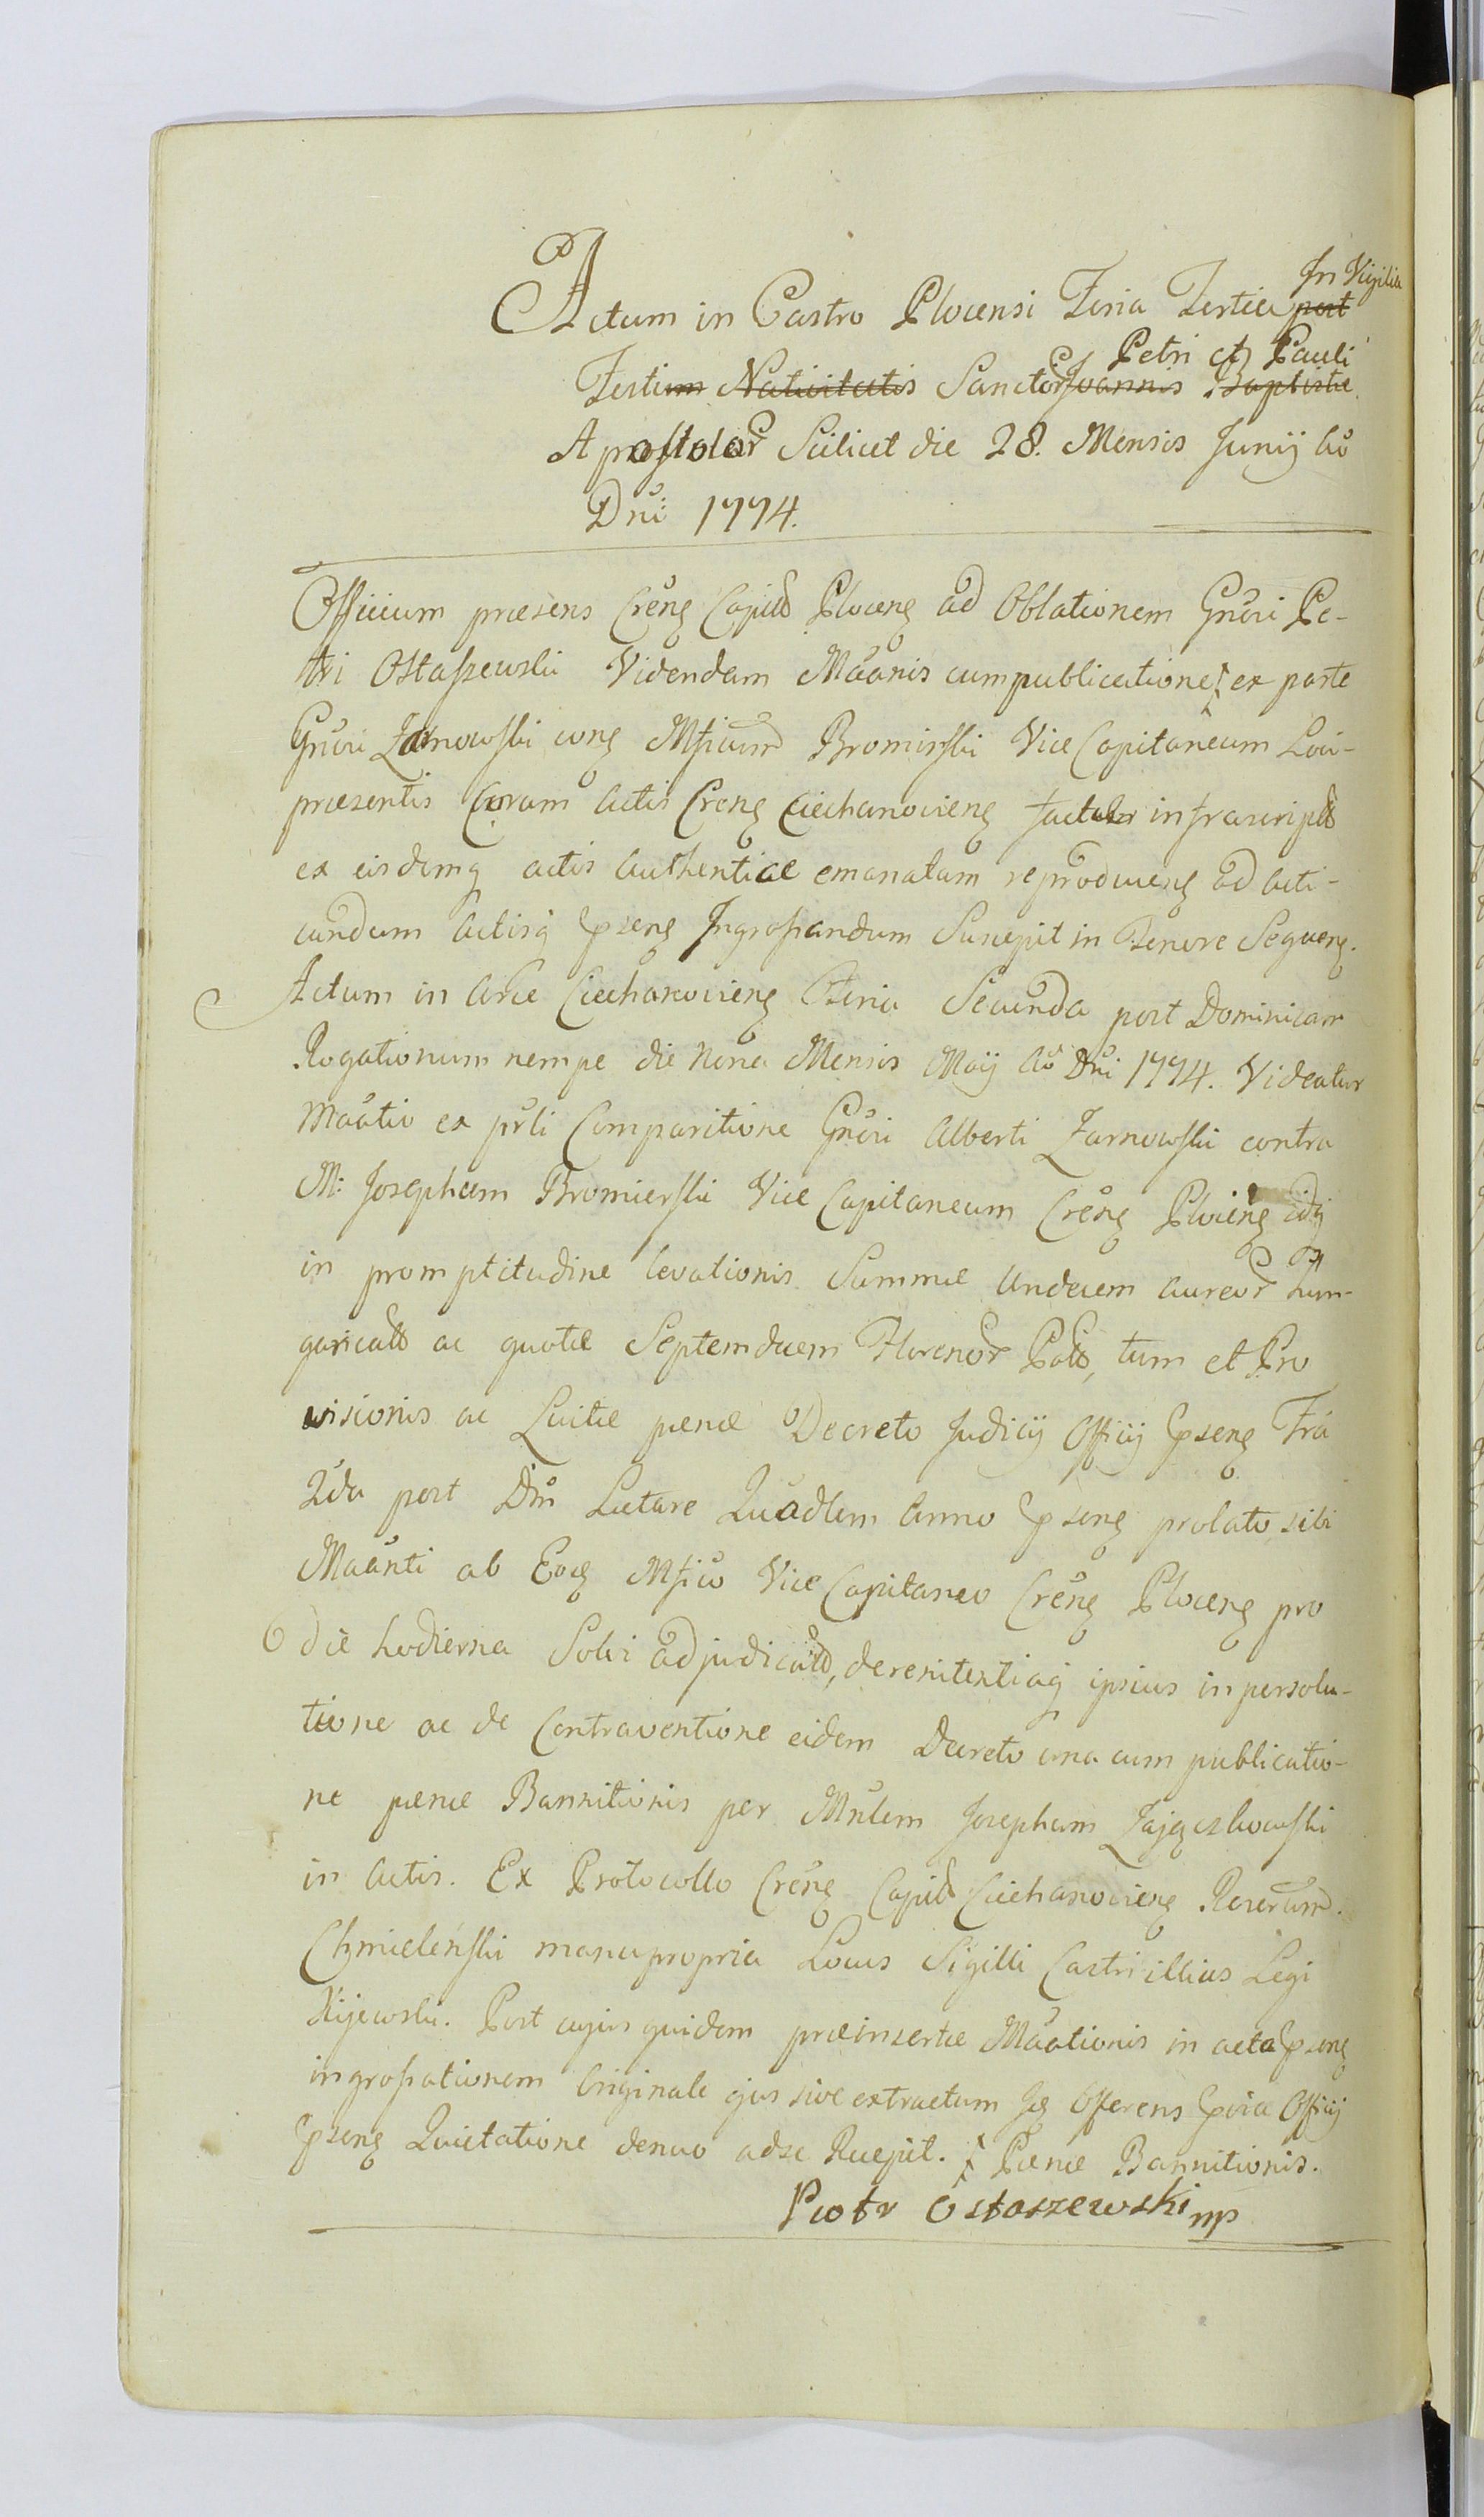 Actum in Castro Plocensi Feria Tertia post In Vigilia
Festum Nativitatis Sanctor Joannis Baptistæ Petri et Pauli
Apostolor Scilicet die 28. Mensis Junij Ao
Dni 1774.
Officium præsens Creng Capitts Ploceng ad Oblationem Gnosi Pe-
tri Ostaszewski Videndam Maonis cum publicatione ex parte
Gnosi Żarnowski Mficum Bromirski Vice Capitaneum Loci-
præsentis Coram Actis Creng Ciechanovieng factam infrascriptts
ex eisdemq actis Authentice emanatam reproducens ad Acti-
candum Actisq pseng Ingrossandum Suscepit in Tenore Sequeng.
Actum in Arce Ciechanovieng Feria Secunda post Dominicam
Rogationum nempe die Nona Mensis Maij Ao Dni 1774. Videatur
Maatio ex psli Comparitione Gnosi Alberti Żarnowski contra
M: Josephum Bromierski Vice Capitaneum Creng Ploceng idq
in promptitudine levationis Summæ Undecem aureor hun-
garicalts ac quotæ Septemdecem Florenor Polts, tum et Pro
visionis ac Luitæ penæ Decreto Judicij Officij pseng Fria
2da post Dm Lætare Quadlem Anno pseng prolato sibi
Maanti ab Eodg Mfico Vice Capitaneo Creng Ploceng pro
die hodierna Solvi adjudicatts, derenitentiaq ipsius in persolu-
tione ac de Contraventione eidem Decreto una cum publicatio-
ne penæ Bannitionis per Mnlem Josephum Zajączkowski
in Actis. Ex Protocollo Creng Capitts Ciechanovieng Rererum.
Chmieleński manu propria Locus Sigilli Castri illius Legi
Kijewski. Post cujus quidem præinsertæ Maationis in acta pseng
ingrossationem Originale ejus sive extractum Offerens Officij
pseng Quietatione denuo ad se Recepit. Pænæ Bannitionis.
Piotr Ostaszewski mp